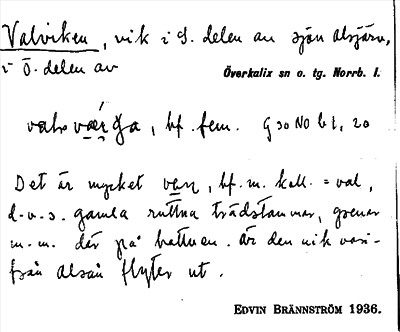 Valviken, vik i S. delen av sjön Alsjärv,
i Ö. delen av Överkalix sn o. tg. Norrb. l.
bf. fem. G 30 NO b 1, 20
Det är mycket bf. m. koll. = val,
d.v.s. gamla ruttna trädstammar, grenar
m.m. där på bottnen. Är den vik vari-
från alsån flyter ut.
EDVIN BRÄNNSTRÖM 1936.